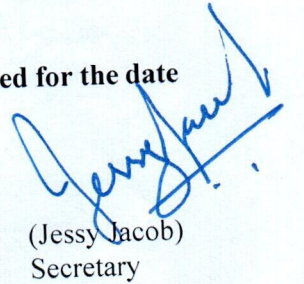 ed for the date
Jessy Jacob
(Jessy Jacob)
Secretary